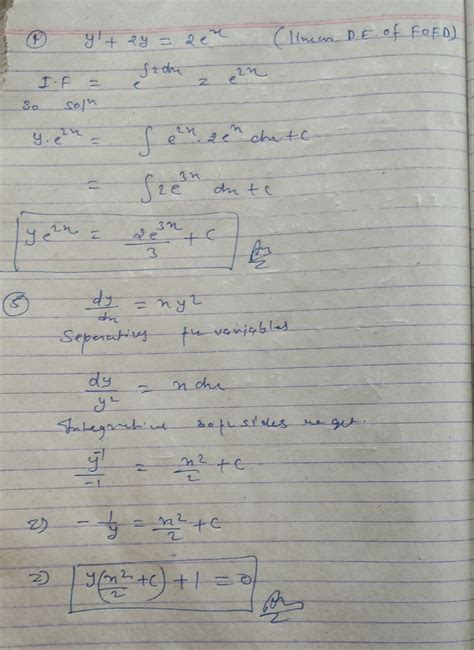 ④ y' + 2y = 2eˣ (linear D.E of FOFD)
I.F = e^∫2dx = e^2x
So solⁿ
y·e^2x = ∫ e^2x · 2e^x dx + C
= ∫ 2e^3x dx + C
ye^2x = 2e^3x/3 + C Ans
⑤ dy/dx = xy²
Seperating the variables
dy/y² = x dx
Integrating both sides we get.
y⁻¹/-1 = x²/2 + C
⇒ -1/y = x²/2 + C
⇒ y(x²/2 + C) + 1 = 0 Ans